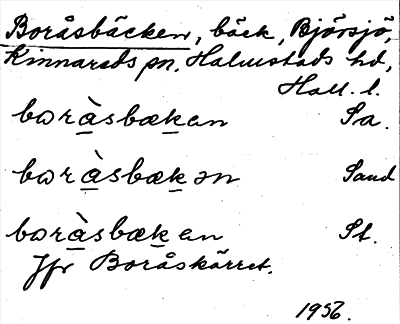 Boråsbäcken, bäck, Björsjö,
Kinnareds sn. Halmstads hd,
Hall. l.
bωràsbæken Sa.
bωràsbækən Sand
bωràsbæken St.
Jfr Boråskärret.
1956.